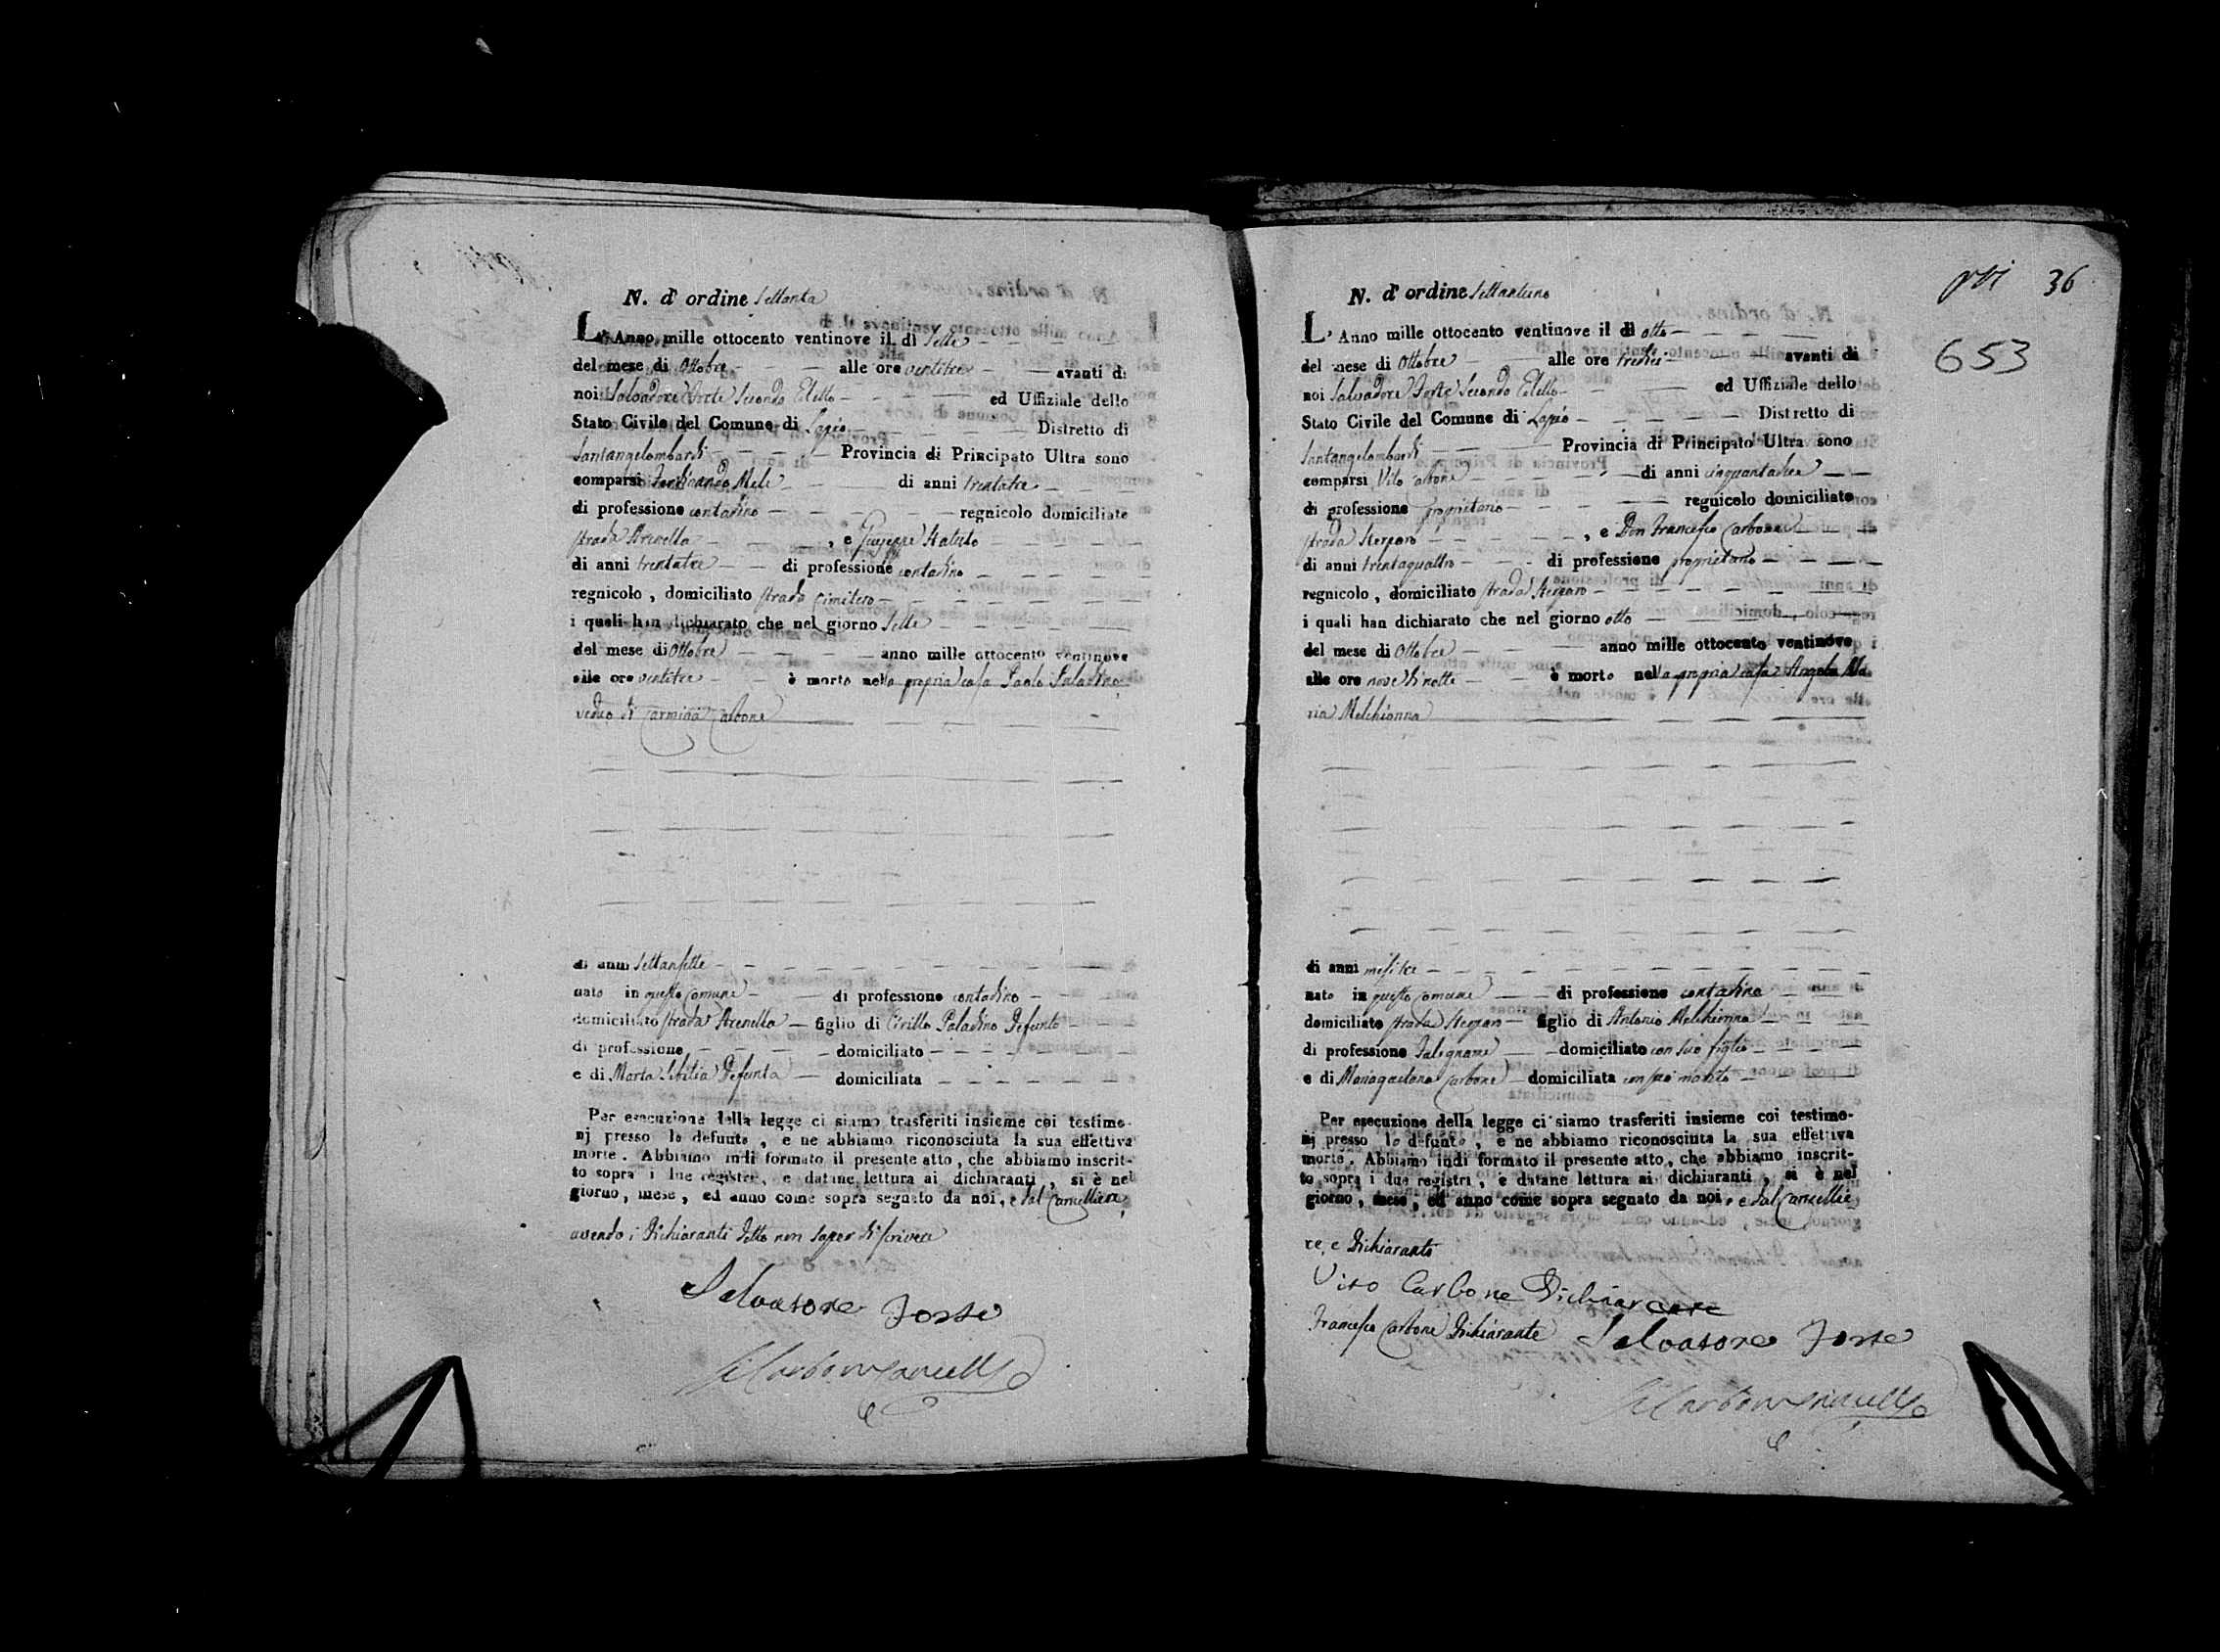 N. d' ordine Settanta
L' Anno mille ottocento ventinove il dì Sette
del mese di Ottobre alle ore ventitre avanti di
noi Salvadore Forte Secondo Eletto ed Uffiziale dello
Stato Civile del Comune di Lapio Distretto di
Santangelombardi Provincia di Principato Ultra sono
comparsi Ferdinando Mele di anni trentatre
di professione contadino regnicolo domiciliato
strada Arenella , e Giuseppe Statuto
di anni trentatre di professione contadino
regnicolo , domiciliato strada Cimitero
i quali han dichiarato che nel giorno Sette
del mese di Ottobre anno mille ottocento ventinove
alle ore ventitre è morto nella propria casa Paolo Paladino
vedovo di Carmina Carbone
di anni Settansette
nato in questo comune di professione contadino
domiciliato strada Arenella figlio di Cirillo Paladino Defunto
di professione domiciliato
e di Marta Defunta domiciliata
Per esecuzione della legge ci siamo trasferiti insieme coi testimo-
nj presso lo defunto , e ne abbiamo riconosciuta la sua effettiva
morte . Abbiamo indi formato il presente atto , che abbiamo inscrit-
to sopra i due registri , e datane lettura ai dichiaranti , si è nel
giorno , mese , ed anno come sopra segnato da noi , e dal Cancelliere,
avendo i Dichiaranti detto non saper di scrivere
Salvatore Forte
N. d' ordine Settantuno
36
L' Anno mille ottocento ventinove il dì otto
653
del mese di Ottobre alle ore tredici avanti di
noi Salvadore Forte Secondo Eletto ed Uffiziale dello
Stato Civile del Comune di Lapio Distretto di
Santangelombardi Provincia di Principato Ultra sono
comparsi Vito Carbone di anni cinquantatre
di professione proprietario regnicolo domiciliato
strada , e Don Francesco Carbone
di anni trentaquattro di professione proprietario
regnicolo , domiciliato strada
i quali han dichiarato che nel giorno otto
del mese di Ottobre anno mille ottocento ventinove
alle ore nove di notte è morto nella propria casa Angela Ma
ria Melchionna
di anni mesi tre
nato in questo comune di professione contadina
domiciliato strada figlio di Antonio Melchionna
di professione Falegname domiciliato con suo figlio
e di Mariagaetana Carbone domiciliata con suo marito
Per esecuzione della legge ci siamo trasferiti insieme coi testimo-
nj presso lo defunto , e ne abbiamo riconosciuta la sua effettiva
morte . Abbiamo indi formato il presente atto , che abbiamo inscrit-
to sopra i due registri , e datane lettura ai dichiaranti , si è nel
giorno , mese , ed anno come sopra segnato da noi , e dal Cancellie
re, e Dichiaranti
Vito Carbone Dichiarante
Francesco Carbone Dichiarante Salvatore Forte